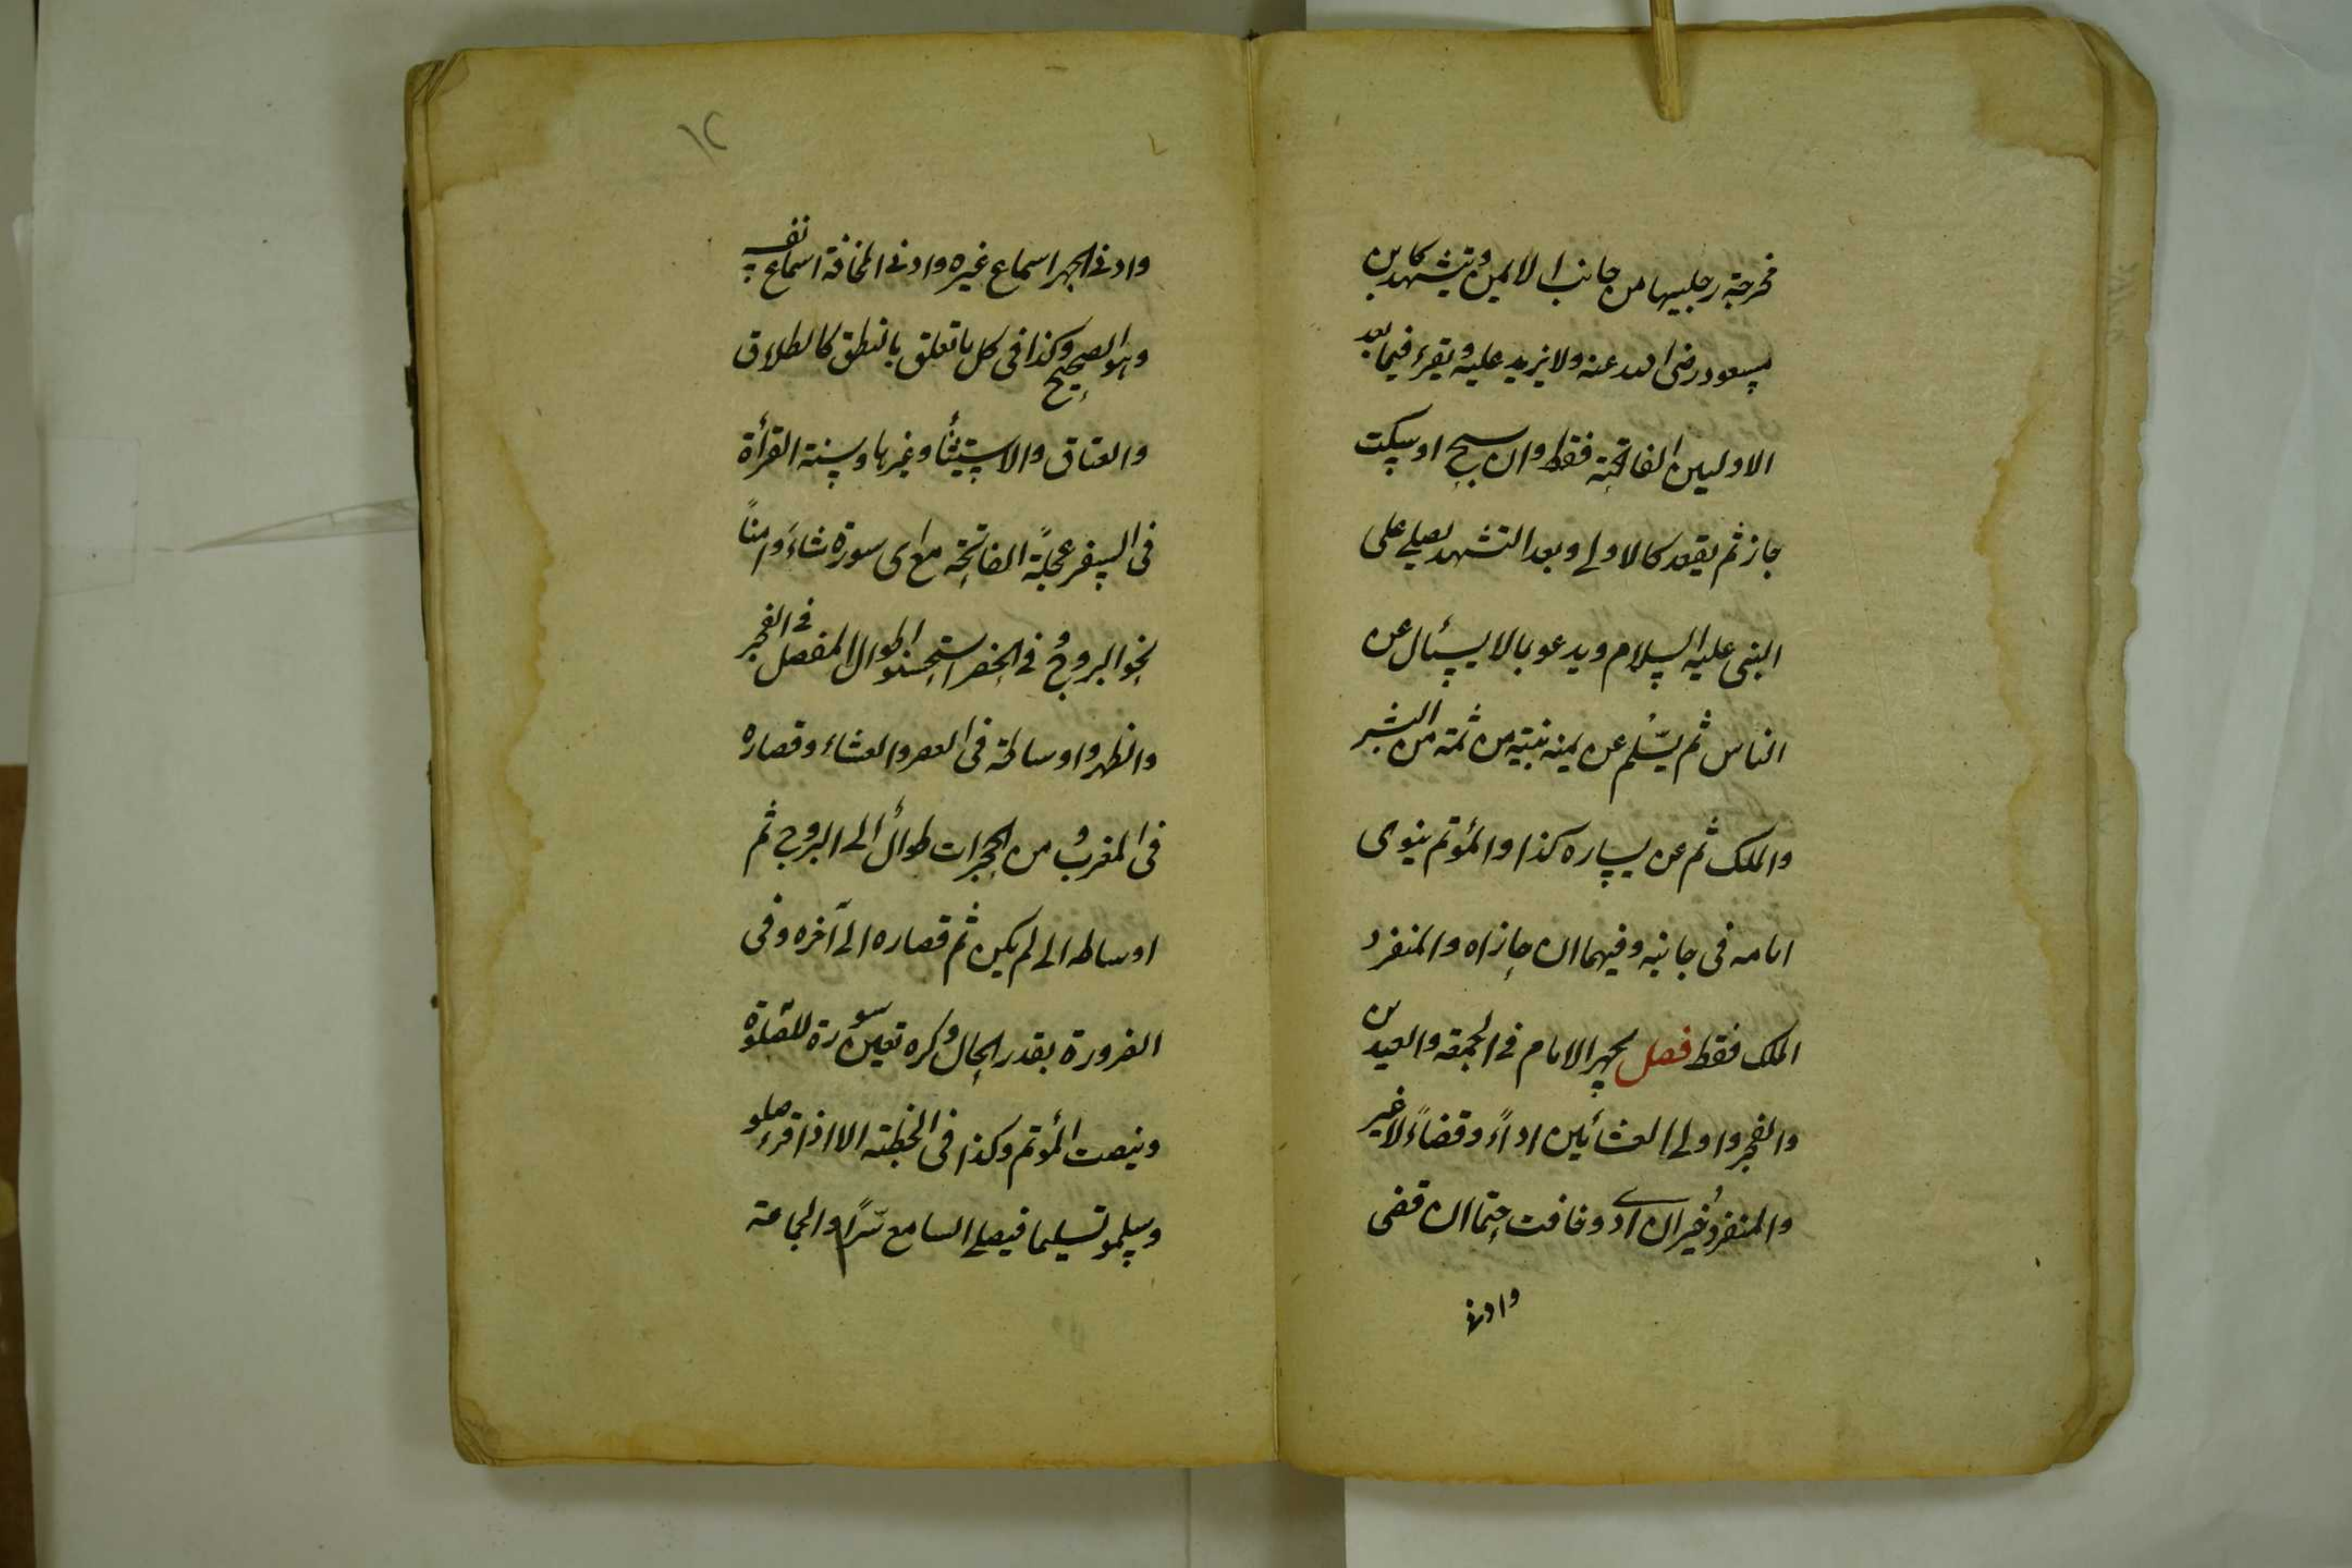 مخرجة رجليها من جانب الايمن ويتشهد كابن
مسعود رضى الله عنه ولا يزيد عليه ويقرء فيما بعد
الاوليين الفاتحة فقط وان سبح او سكت
جاز ثم يقعد كالاولى وبعد التشهد يصلى على
النبى عليه السلام ويدعو بما لا يسئال عن
الناس ثم يسلم عن يمينه بنية من ثمة من البشر
والملك ثم عن يساره كذا والمؤتم ينوى
امامه فى جانبه وفيهما ان حاذاه والمنفرد
الملك فقط فصل يجهر الامام فى الجمعة والعيدين
والفجر واولى العشائين اداءً وقضاءً لا غير
والمنفرد خير ان ادى وخافت حتما ان قضى
وادنى
١٢
وادنى الجهر اسماع غيره وادنى المخافتة اسماع نفسه
وهو الصحيح وكذا فى كل ما تعلق بالنطق كالطلاق
والعتاق والاستيثنأ وغيرها وسنة القرأة
فى السفر عجلةً الفاتحة مع اى سورة شاءَ وامناً
نحو البروج وفى الحضر استحسنوا طوال المفصل فى الفجر
والظهر واوساطه فى العصر والعشاء وقصاره
فى المغرب ومن الحجرات طوال الى البروج ثم
اوساطه الى لم يكن ثم قصاره الى آخره وفى
الضرورة بقدر الحال وكره تعين سورة للصلوة
وينصت المؤتم وكذا فى الخطبة الا اذا قرء صلو
وسلمو تسليما فيصلى السامع سّراً والجماعة